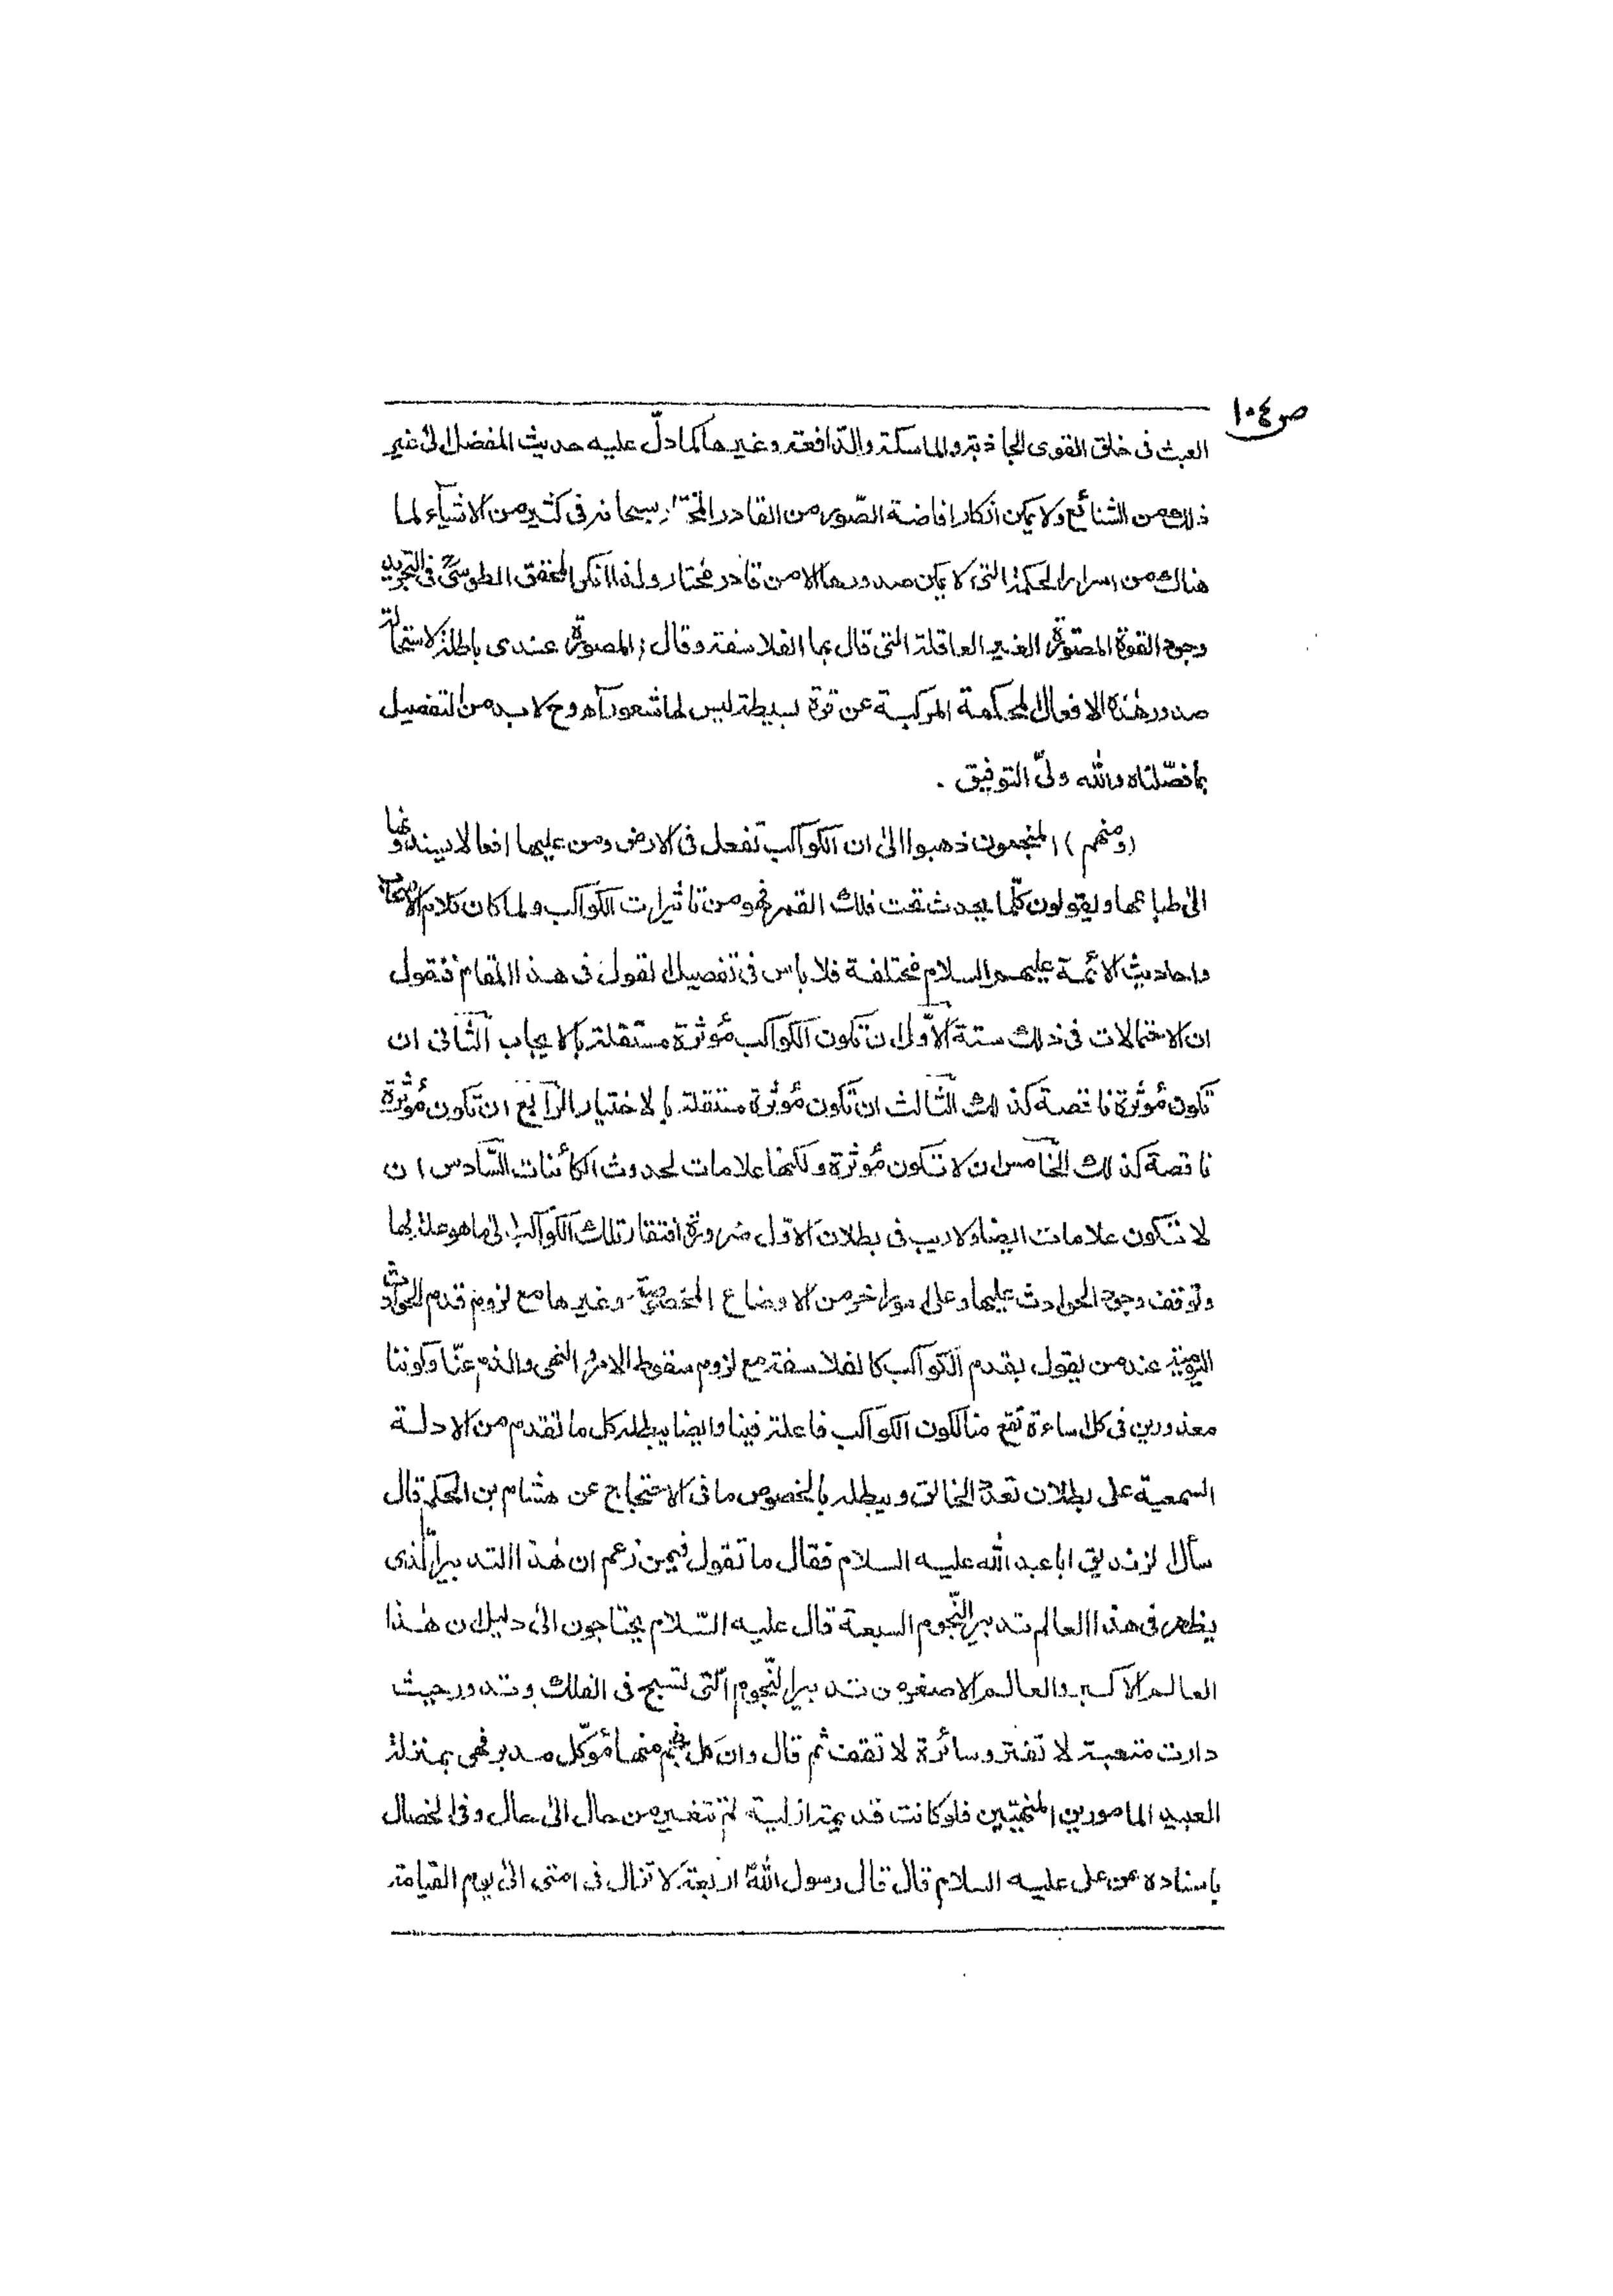 ص ١٠٤
العبث فى خلق القوى الجاذبة والماسكة والدافعة وغيرها كما دلّ عليه حديث المفضل الى غير
ذلك من الشنائع ولا يمكن انكار افاضة الصّور من القادر المختار سبحانه فى كثير من الاشياء لما
هناك من اسرار الحكمة التى لا يمكن صدورها الا من قادر مختار ولذا انكر المحقق الطوسىّ فى التجريد
وجود القوة المصوّرة الغير العاقلة التى قال بها الفلاسفة وقال : المصورة عندى باطلة لاستحالة
صدور هٰذه الافعال المحكمة المركبة عن قوة بسيطة ليس لها شعور اه وح لا بد من التفصيل
بما فصّلناه والله ولىّ التوفيق .
(ومنهم) المنجمون ذهبوا الىٰ ان الكواكب تفعل فى الارض ومن عليها افعالا يسندونها
الىٰ طباعها ويقولون كلّما يحدث تحت فلك القمر فهو من تاثيرات الكواكب ولما كان كلام الاصحاب
واحاديث الائمة عليهم السلام مختلفة فلا باس فى تفصيل القول فى هذا المقام فنقول
ان الاحتمالات فى ذلك ستة الاوّل ان تكون الكواكب مؤثرة مستقلة بالايجاب الثانى ان
تكون مؤثرة ناقصة كذلك الثالث ان تكون مؤثرة مستقلة بالاختيار الرابع ان تكون مؤثرة
ناقصة كذلك الخامس ان لا تكون مؤثرة ولكنها علامات لحدوث الكائنات السّادس ان
لا تكون علامات ايضا ولا ريب فى بطلان الاوّل ضرورة افتقار تلك الكواكب الى ما هو علة لها
وتوقف وجود الحوادث عليها وعلى امور اخر من الاوضاع المخصوصة وغيرها مع لزوم قدم الحوادث
اليومية عند من يقول بقدم الكواكب كالفلاسفة مع لزوم سقوط الامر والنهى والذم عنّا وكوننا
معذورين فى كل اساءة تقع منا لكون الكواكب فاعلة فينا وايضا يبطله كل ما تقدم من الادلة
السمعية على بطلان تعدد الخالق ويبطله بالخصوص ما فى الاحتجاج عن هشام بن الحكم قال
سأل الزنديق ابا عبد الله عليه السلام فقال ما تقول فيمن زعم ان هٰذا التدبير الّذى
يظهر فى هذا العالم تدبير النّجوم السبعة قال عليه السّلام يحتاجون الىٰ دليل ان هٰذا
العالم الاكبر والعالم الاصغر من تدبير النّجوم الّتى تسبح فى الفلك وتدور حيث
دارت متعبة لا تفتر وسائرة لا تقف ثم قال وان كل نجم منها مؤكّل مدبر فهى بمنزلة
العبيد المامورين المنهيّين فلو كانت قديمة ازلية لم تتغير من حال الىٰ حال وفى الخصال
باسناده عن على عليه السلام قال قال رسول اللهؐ اربعة لا تزال فى امتى الىٰ يوم القيامة